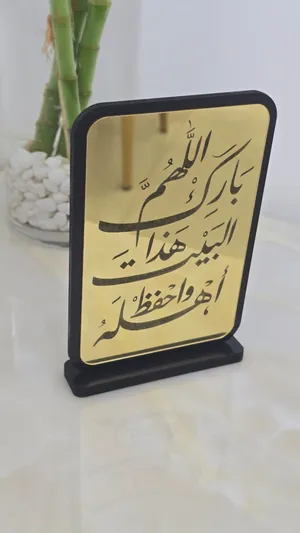 اللَّهُمَّ بَارِك
هَذَا البَيْت
وَاحْفَظْ
أَهْلَهُ